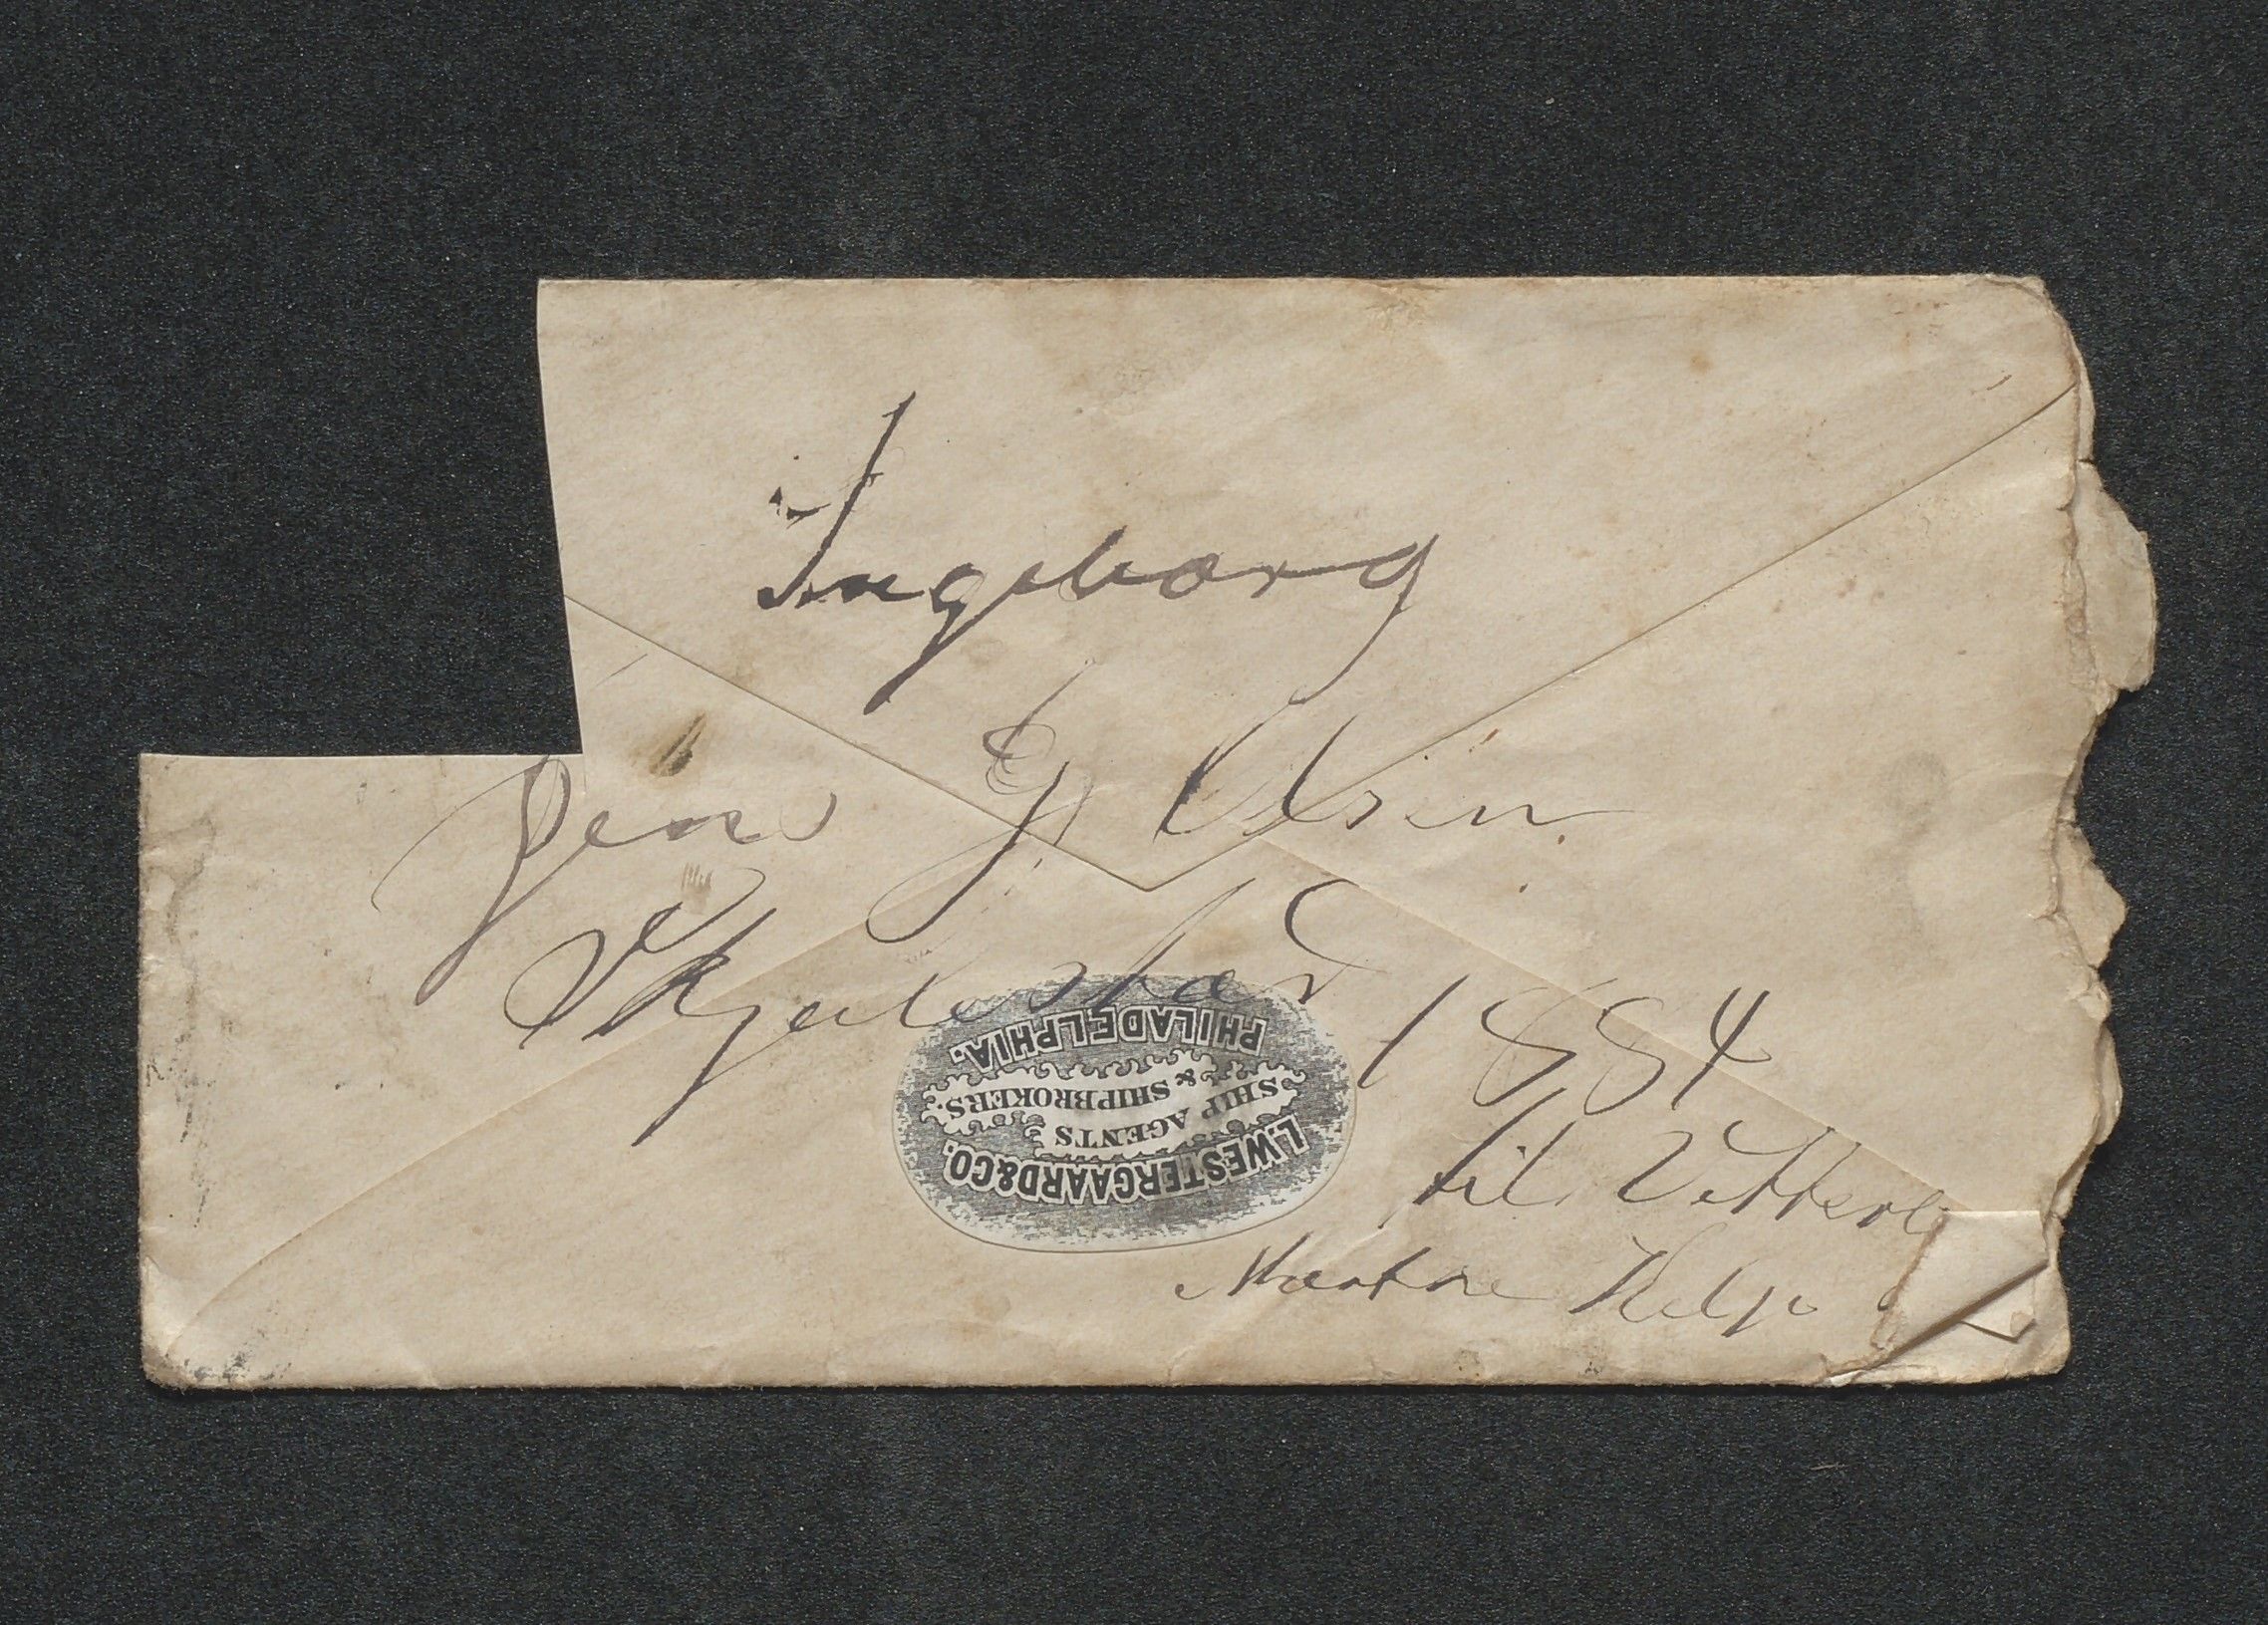 Ingeborg
Jens J. Olsen
Skjelstad
1884
til Vetterl
Martine Helje
L. WESTERGAARD & CO.
SHIP AGENTS
& SHIPBROKERS.
PHILADELPHIA.